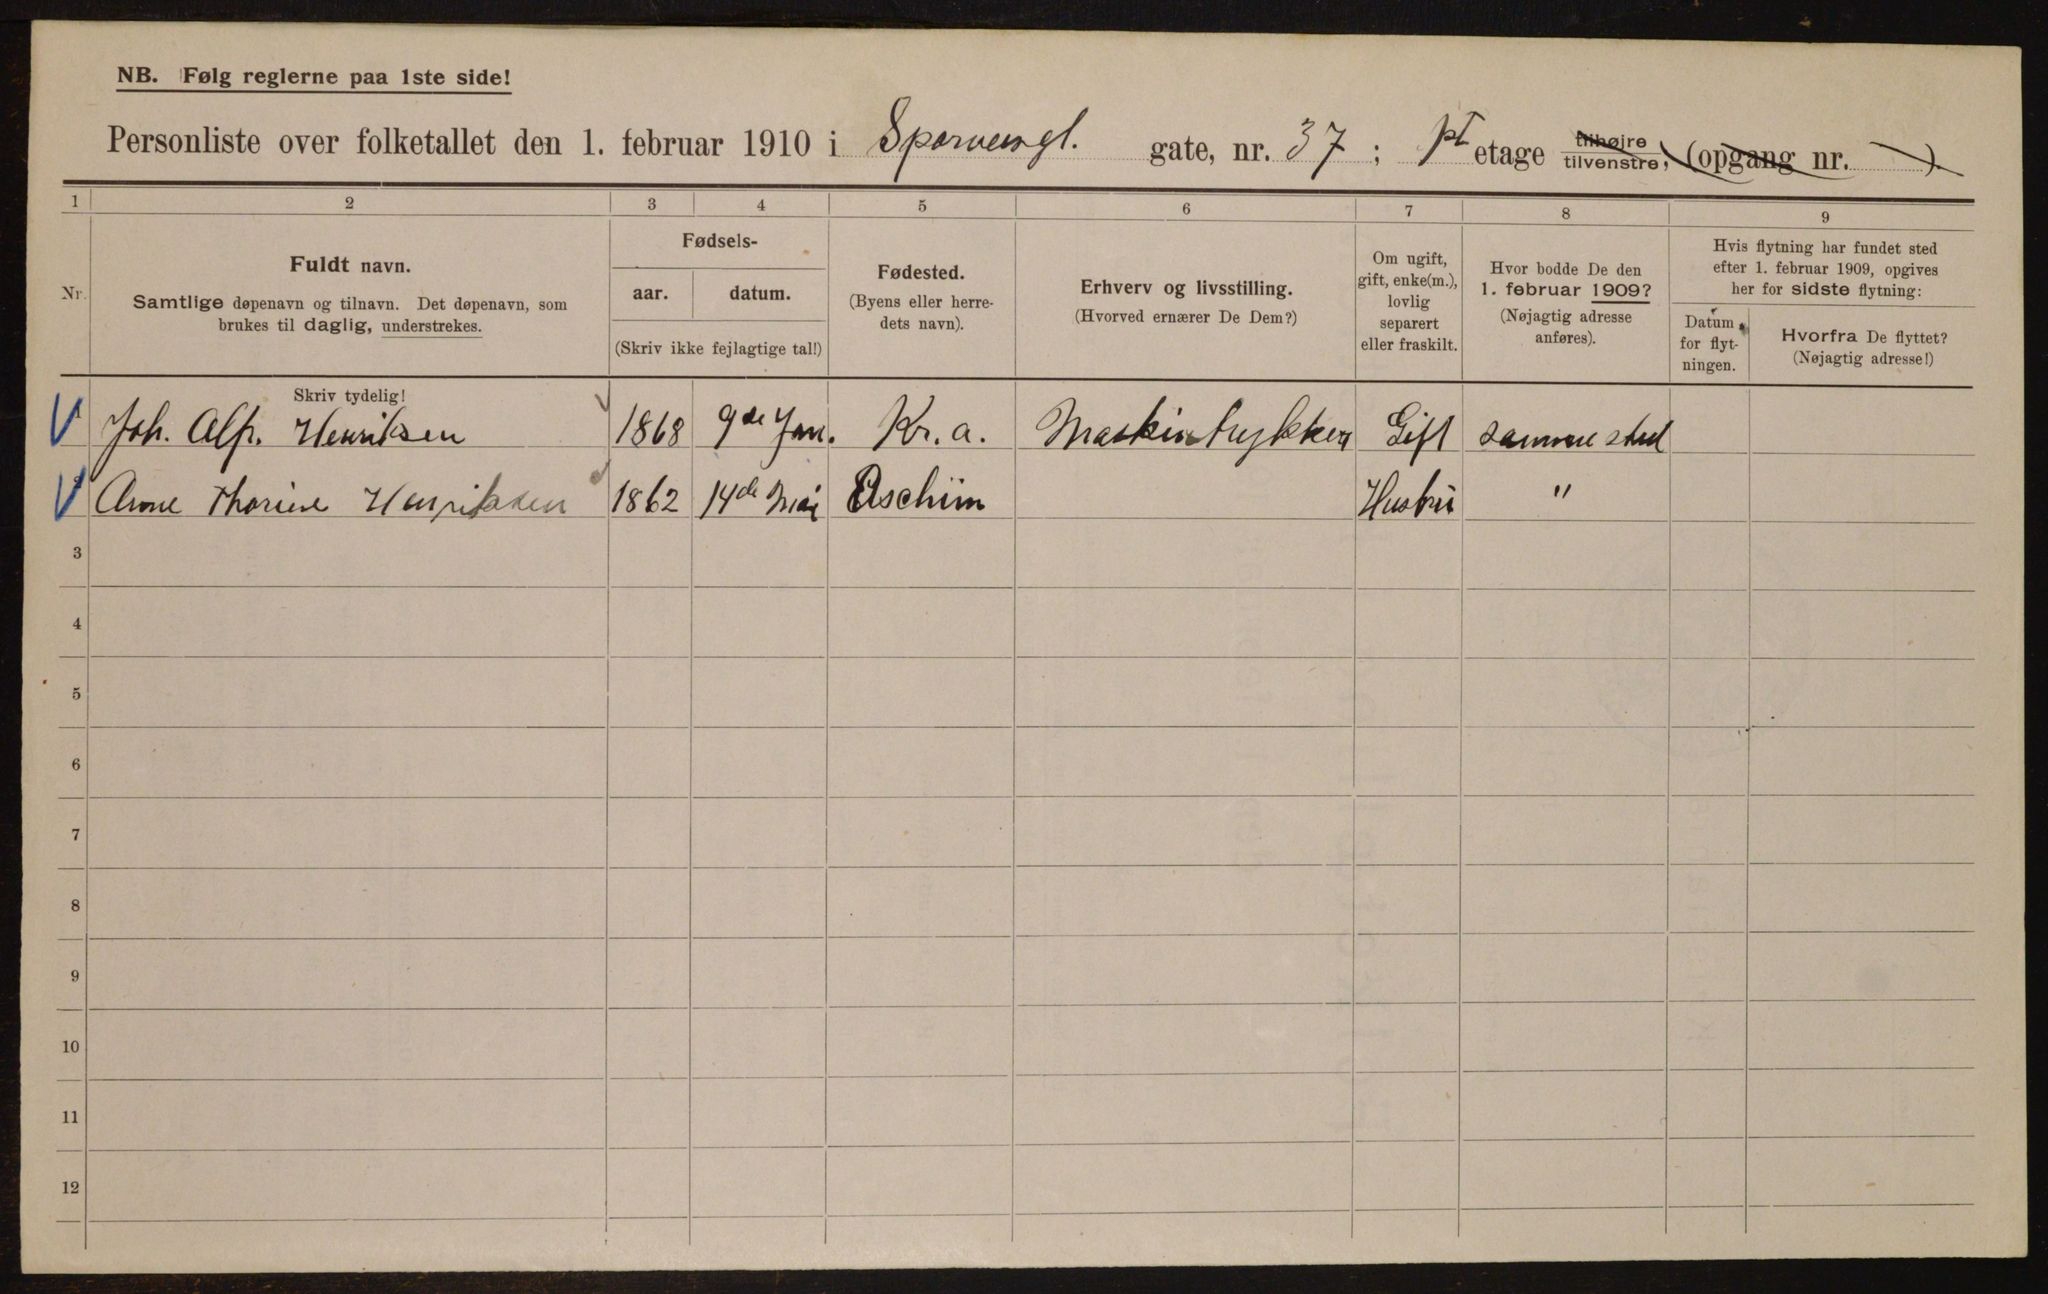 NB. Følg reglerne paa 1ste side!
Personliste over folketallet den 1. februar 1910 i Sporveisgt. gate, nr. 37; pt etage tilhøjre tilvenstre, (opgang nr. ).
1 2 3 4 5 6 7 8 9
Nr.
Fuldt navn.
Samtlige døpenavn og tilnavn. Det døpenavn, som
brukes til daglig, understrekes.
Fødsels-
aar. datum.
(Skriv ikke fejlagtige tal!)
Fødested.
(Byens eller herre-
dets navn).
Erhverv og livsstilling.
(Hvorved ernærer De Dem?)
Om ugift,
gift, enke(m.),
lovlig
separert
eller fraskilt.
Hvor bodde De den
1. februar 1909?
(Nøjagtig adresse
anføres).
Hvis flytning har fundet sted
efter 1. februar 1909, opgives
her for sidste flytning:
Datum
for flyt-
ningen.
Hvorfra De flyttet?
(Nøjagtig adresse!)
Skriv tydelig!
Joh. Alfr. Henriksen 1868 9de Jan. Kr.a. Maskintrykker Gift samme sted
Anne Thorine Henriksen 1862 14de Mai Eschim Hustru "
3
4
5
6
7
8
9
10
11
12